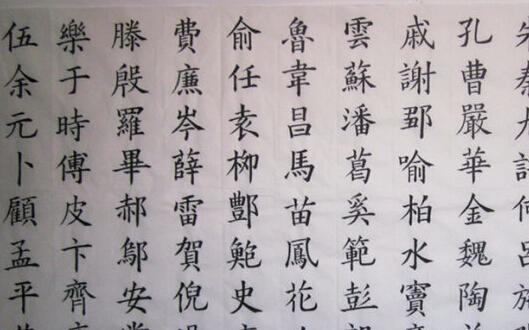 孔曹嚴華金魏陶
戚謝鄒喻柏水竇
雲蘇潘葛奚範彭
魯韋昌馬苗鳳花
俞任袁柳酆鮑史
費廉岑薛雷賀倪
滕殷羅畢郝鄔安
樂于時傅皮卞齊
伍余元卜顧孟平